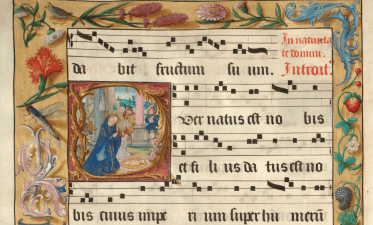 In natiuita
te domini.
Introit.
da bit fructum su um.
Puer natus est no bis
et fi li us da tus est no
bis cuius impe ri um super hu merū